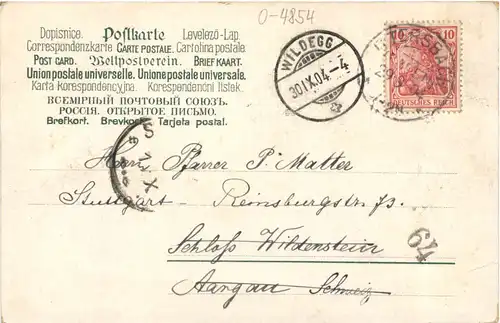 O-4854
Dopisnice. Postkarte Levelező-Lap.
Correspondenzkarte CARTE POSTALE. Cartolina postale
POST CARD. Weltpostverein. BRIEFKAART.
Union postale universelle. Unione postale universale.
Karta Korespondencyjna. Korespondenční lístek.
ВСЕМІРНЫЙ ПОЧТОВЫЙ СОЮЗЪ.
РОССІЯ. ОТКРЫТОЕ ПИСЬМО.
Brefkort. Brevkort. Tarjeta postal.
WILDEGG
30 IX 04 - 4
10 10
DEUTSCHES REICH
S
1 X
Herrn Pfarrer P. Matter
Stuttgart - Reinsburgstr. 73.
Schloss Wildenstein
Aargau Schweiz
64